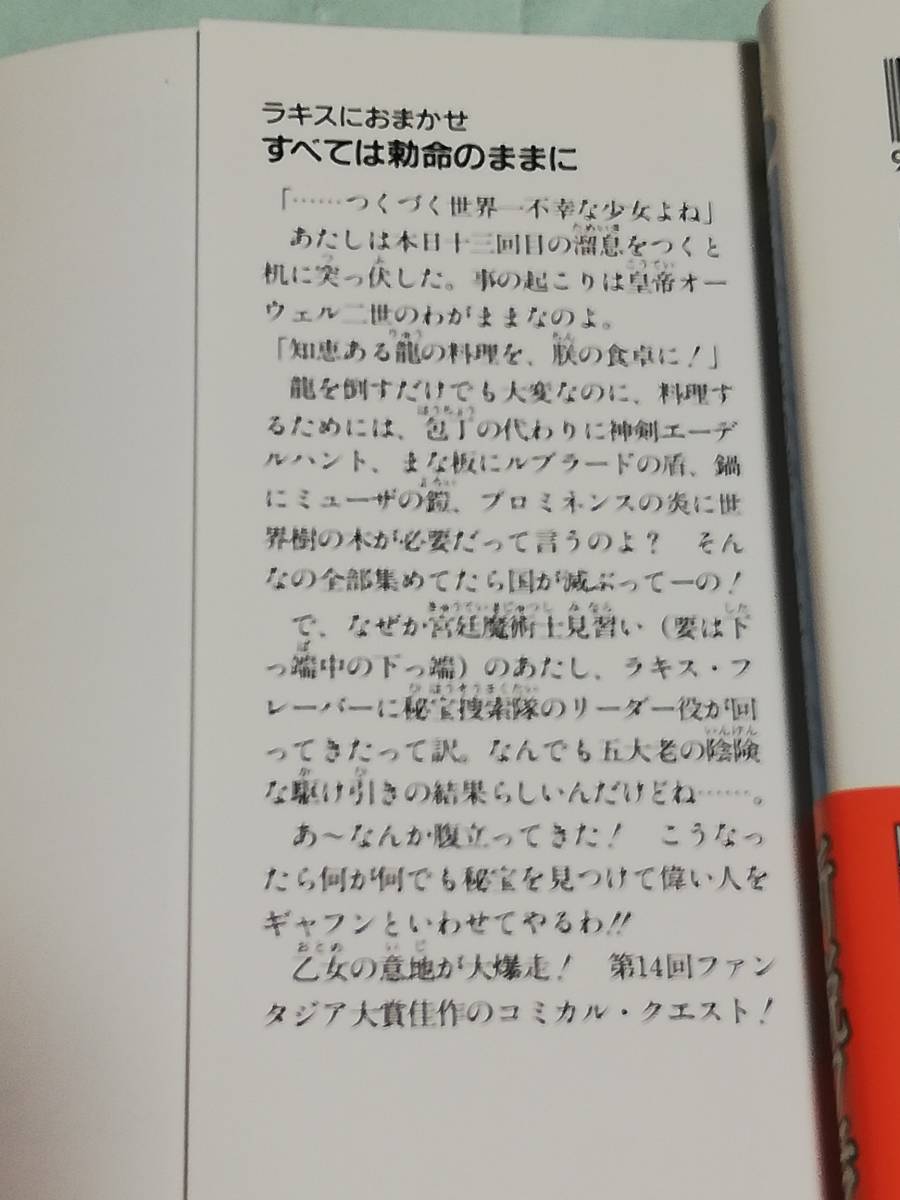 ラキスにおまかせ
すべては勅命のままに
「……つくづく世界一不幸な少女よね」
あたしは本日十三回目の溜息をつくと
机に突っ伏した。事の起こりは皇帝オー
ウェル二世のわがままなのよ。
「知恵ある龍の料理を、朕の食卓に！」
龍を倒すだけでも大変なのに、料理す
るためには、包丁の代わりに神剣エーデ
ルハント、まな板にルブラードの盾、鍋
にミューザの鎧、プロミネンスの炎に世
界樹の木が必要だって言うのよ？　そん
なの全部集めてたら国が滅ぶってーの！
で、なぜか宮廷魔術士見習い（要は下
っ端中の下っ端）のあたし、ラキス・フ
レーバーに秘宝捜索隊のリーダー役が回
ってきたって訳。なんでも五大老の陰険
な駆け引きの結果らしいんだけどね……。
あ～なんか腹立ってきた！　こうなっ
たら何が何でも秘宝を見つけて偉い人を
ギャフンといわせてやるわ!!
乙女の意地が大爆走！　第14回ファン
タジア大賞佳作のコミカル・クエスト！